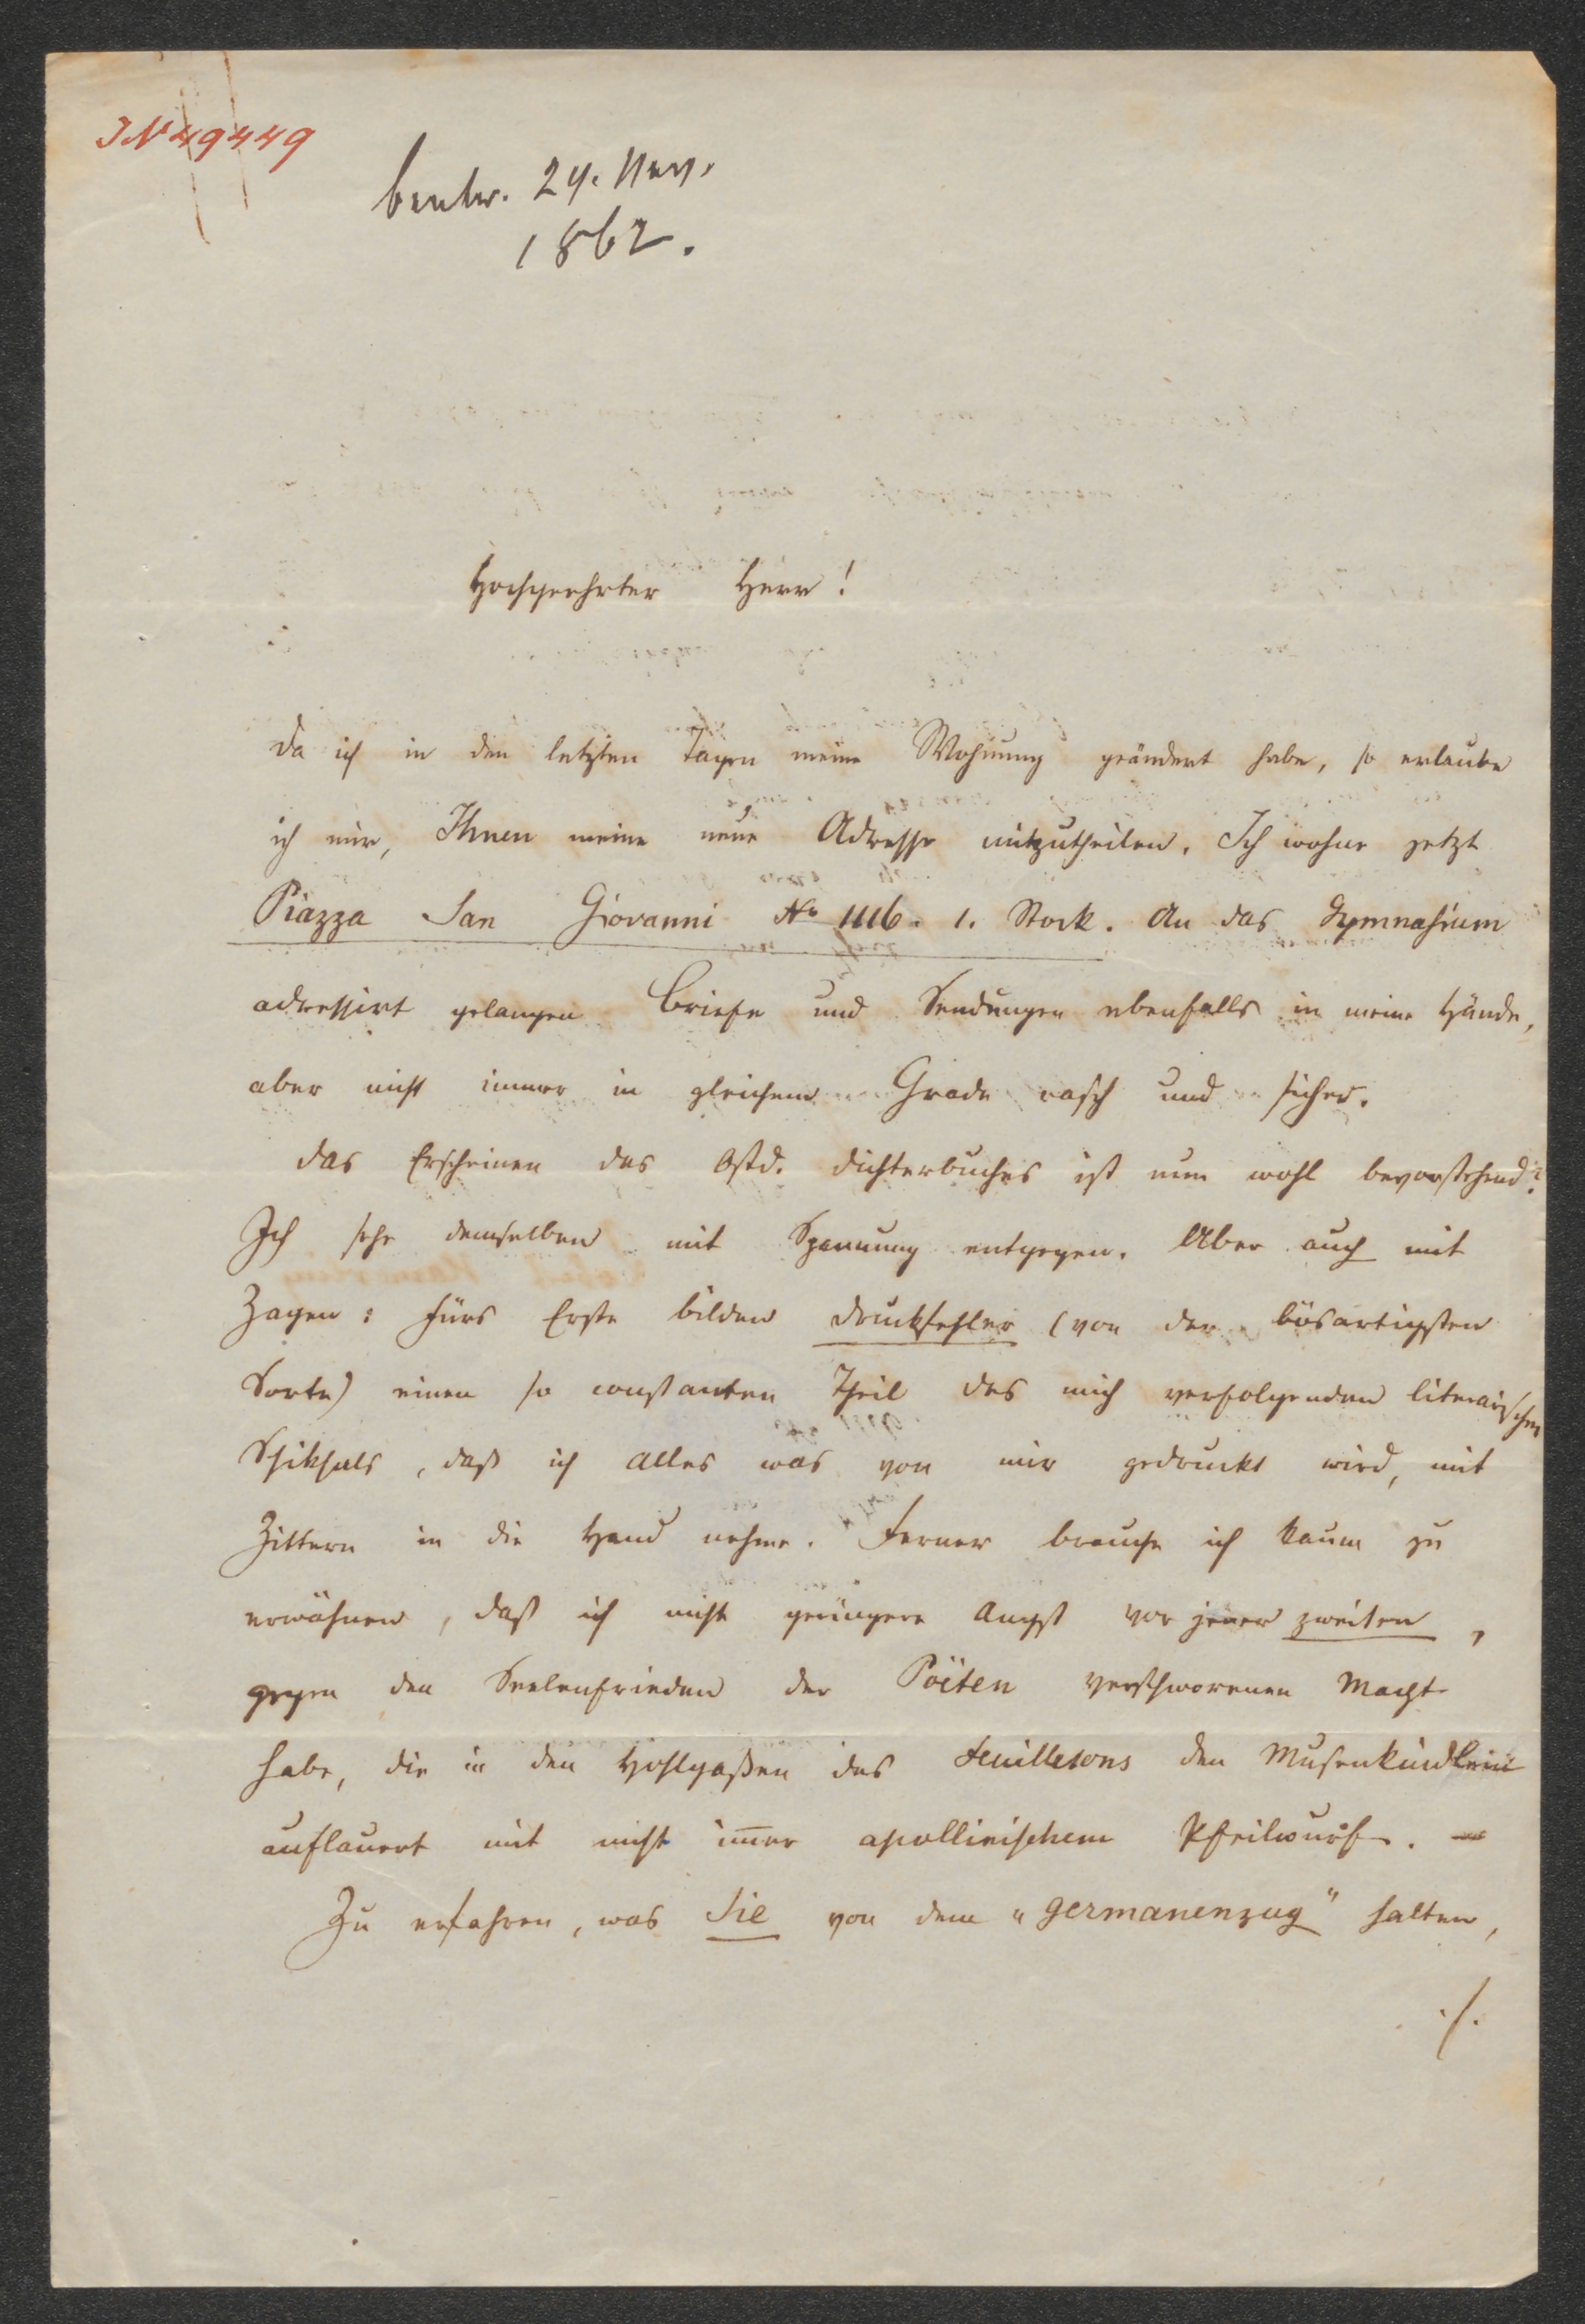 JN 49449
beantw. 24. Nov.
1862.
Hochgeehrter Herr!
Da ich in den letzten Tagen meine Wohnung geändert habe, so erlaube
ich mir, Ihnen meine neue Adresse mitzutheilen. Ich wohne jetzt
Piazza San Giovanni No 1116. 1. Stock. An das Gymnasium
adressirt gelangen Briefe und Sendungen ebenfalls in meine Hände,
aber nicht immer in gleichem Grade rasch und sicher.
Das Erscheinen des Östd. Dichterbuches ist nun wohl bevorstehend?
Ich sehe demselben mit Spannung entgegen. Aber auch mit
Zagen: fürs Erste bilden Druckfehler (von der bösartigsten
Sorte) einen so constanten Theil des mich verfolgenden literarischen
Schiksals, daß ich alles was von mir gedruckt wird, mit
Zittern in die Hand nehme. Ferner brauche ich kaum zu
erwähnen, daß ich nicht geringere Angst vor jener zweiten,
gegen den Seelenfrieden der Poëten verschworenen Macht
habe, die in den Hohlgaßen des Feuilletons den Musenkindlein
auflauert mit nicht im̅er apollinischem Pfeilwurf. —
Zu erfahren, was Sie von dem "Germanenzug" halten,
./.